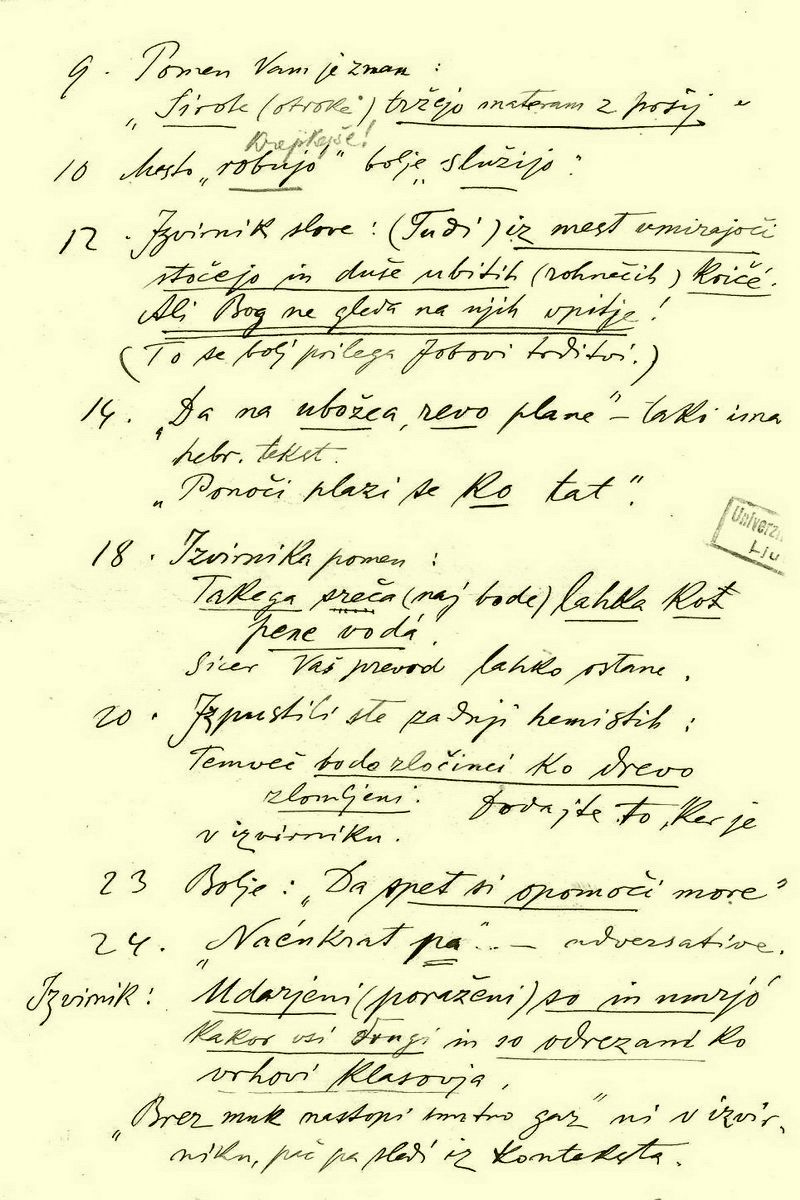 9. Pomen Vam je znan :
„Sirote (otroke) tržejo materam z prsij"
Krepkejše!
10 Mesto „robujo" bolje „služijo".
12. Izvirnik slove : (Tudi) iz mest umirajoči
stočejo in duše ubitih (rohnečih) kriče.
Ali Bog ne gleda na njih vpitje !
(To se bolj prilega Jobovi trditvi.)
14. „Da na ubožca, revo plane" – tako ima
hebr. tekst.
„Ponoči plazi se ko tat".
18. Izvirnika pomen :
Takega sreča (naj bode) lahka kot
pene vodá.
Sicer Vaš prevod lahko ostane.
20. Izpustili ste zadnji hemistih :
Temveč bodo zločinci ko drevo
zlomljeni. Dodajte to, ker je
v izvirniku.
23 Bolje : „Da spet si opomoči more"
24. „Naenkrat pa".. – adversative.
Izvirnik : Udarjeni (poraženi) so in umrjó
kakor vsi drugi in so odrezani ko
vrhovi klasovja.
„Brez muk nastopi smrtno gaz" ni v izvir-
niku, pač pa sledi iz konteksta.
Univerz
Lju